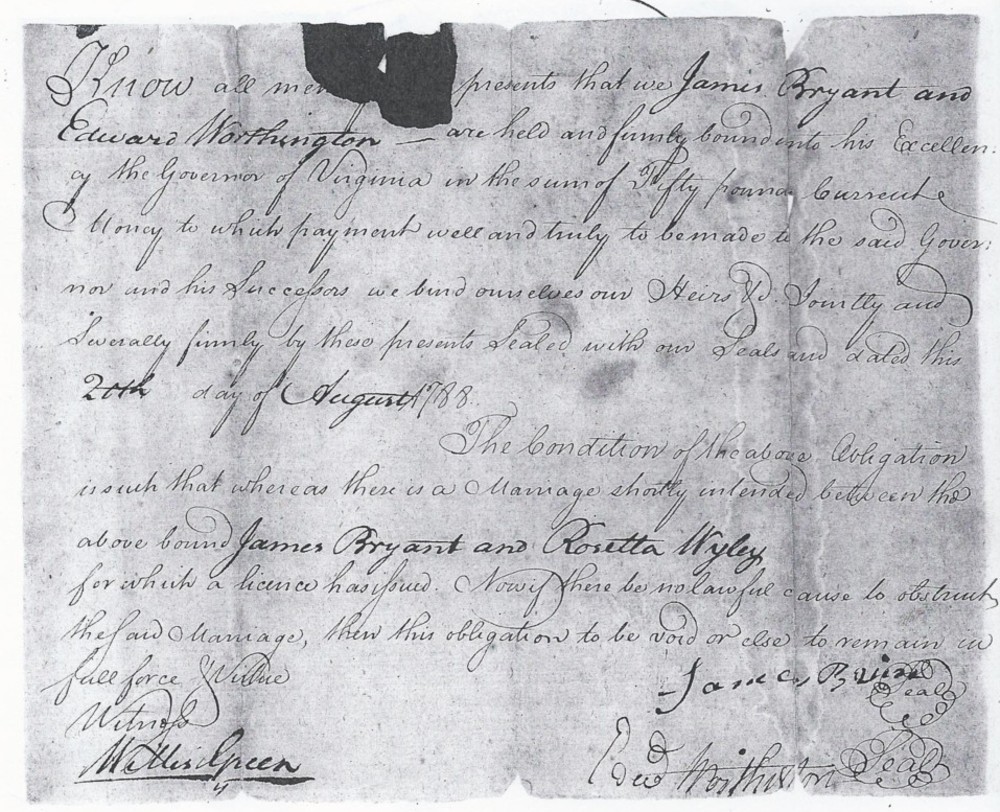 Know all men presents that we James Bryant and
Edward Worthington — are held and firmly bound unto his Excellen:
cy the Governor of Virginia in the sum of Fifty pounds Current
Money to which payment well and truly to be made to the said Gover:
nor and his Successors we bind ourselves our Heirs &c. Jointly and
Severally firmly by these presents Sealed with our Seals and dated this
20th day of August 1788.
The Condition of the above Obligation
is such that whereas there is a Marriage shortly intended between the
above bound James Bryant and Rosetta Wyley
for which a licence has issued. Now if there be no lawful cause to obstruct
the said Marriage, then this obligation to be void or else to remain in
full force & Virtue
James Seal
Witness
Willis Green
Edwd Worthington Seal